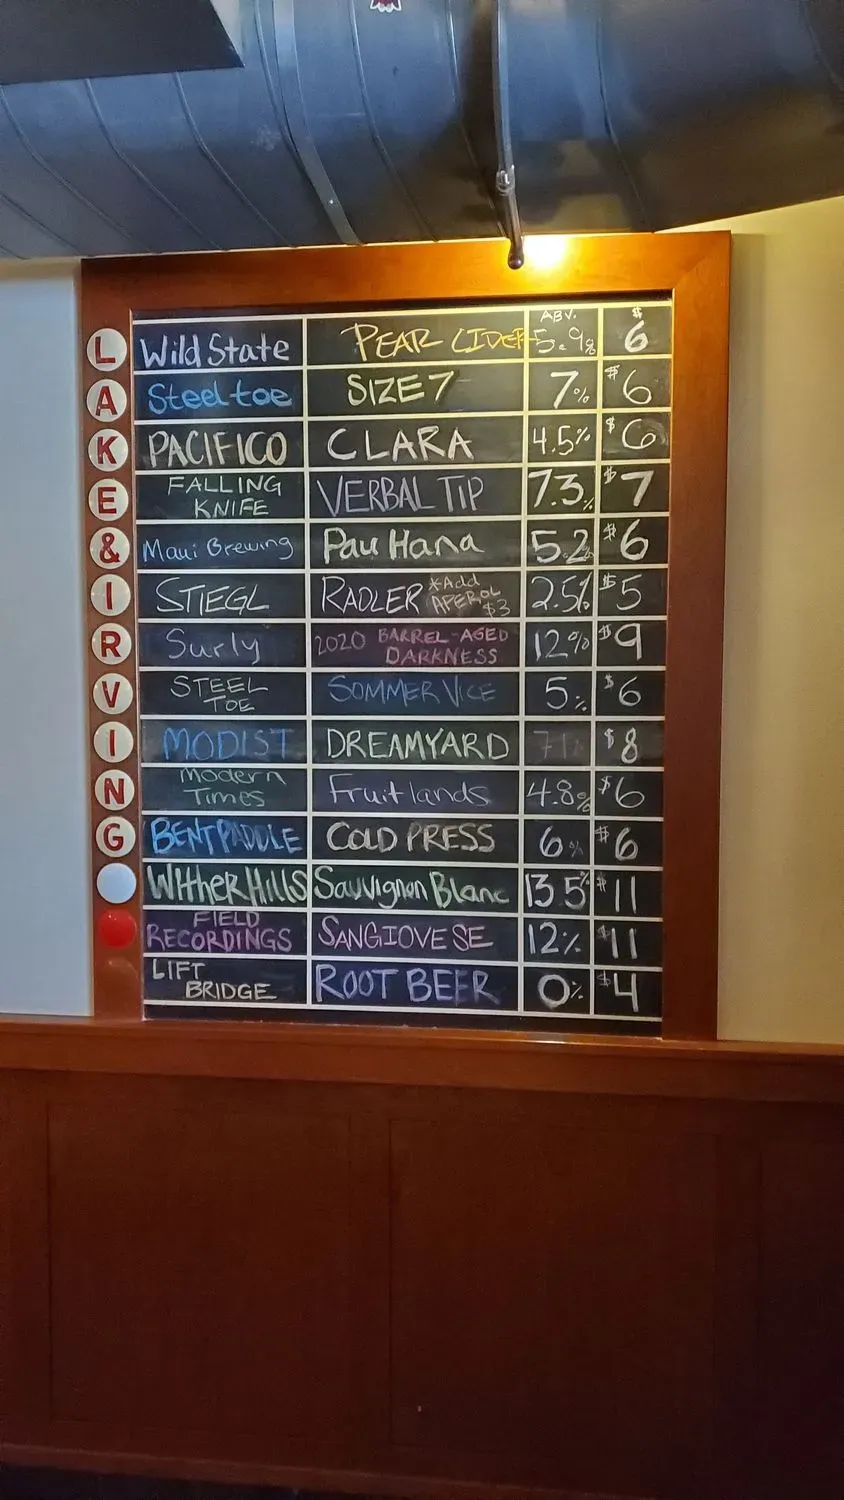 LAKE&IRVING
ABV. $
Wild State PEAR CIDER 5.9% 6
Steel toe SIZE 7 7% $6
PACIFICO CLARA 4.5% $6
FALLING KNIFE VERBAL TIP 7.3% $7
Maui Brewing Pau Hana 5.2% $6
STIEGL RADLER *Add APEROL $3 2.5% $5
Surly 2020 BARREL-AGED DARKNESS 12% $9
STEEL TOE SOMMER VICE 5% $6
MODIST DREAMYARD $8
Modern Times Fruitlands 4.8% $6
BENT PADDLE COLD PRESS 6% $6
WitherHills Sauvignon Blanc 13.5% $11
FIELD RECORDINGS SANGIOVESE 12% $11
LIFT BRIDGE ROOT BEER 0% $4